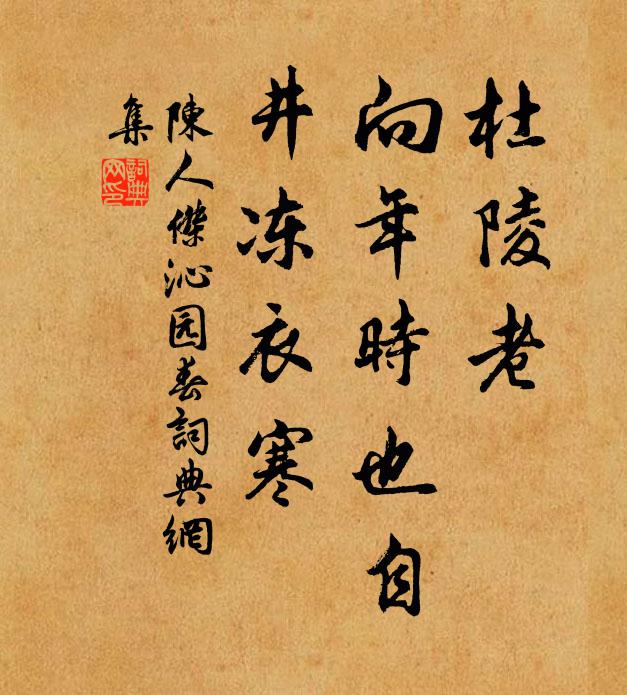 杜陵老
向年時也自
井冻衣寒
陳人傑沁园春詞典網
集
詞典
网印